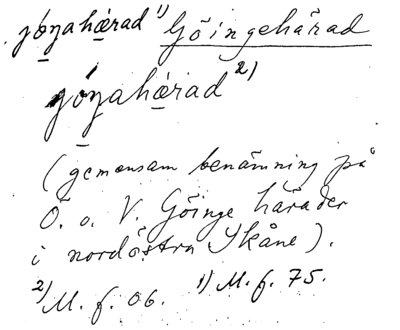 jo̱ŋahæ̱rad ¹⁾ Göingehärad
jó̱ŋahæ̱rad ²⁾
(gemensam benämning på
Ö. o. V. Göinge härader
i nordöstra Skåne).
²⁾ M. f. 06. ¹⁾ M. f. 75.